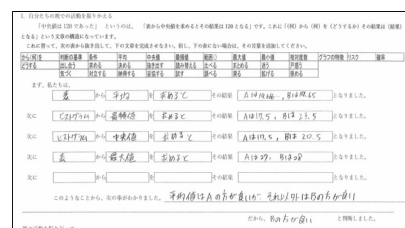 1. 自分たちの班での活動を振りかえる
「中央値は 120 であった」というのは、「表から中央値を求めるとその結果は120となる」です。これに「(何)から(何)を(どうするか)その結果は(結果)となる」という文章の構造になっています。
これに習って、次の表から抜き出して、下の文章を完成させなさい。但し、下の表にない場合は、その言葉を追加してください。
から(何)を 判断の基準 条件 平均 中央値 最頻値 範囲 最大値 最小値 相対度数 グラフの特徴 リスク 確率
どうする 出し合う 求める 決める 抜き出す 読み替える 比べる まとめる 迷う 戸惑う
気づく 対立する 納得する 妥協する 試す 調べる 探る 拡げる 狭める
まず、私たちは、
表 から 平均 を 求めると その結果 Aは 、Bは となりました。
次に ヒストグラム から 最頻値 を 求めると その結果 Aは17.5、Bは 23.5 となりました。
次に ヒストグラム から 中央値 を 求めると その結果 Aは17.5、Bは 20.5 となりました。
次に 表 から 最大値 を 求めると その結果 Aは29、Bは28 となりました。
次に から を その結果 となりました。
このようなことから、次の事がわかりました。 平均値はAの方が良いが、それ以外はBの方が良い
だから、 Bの方が良い と判断しました。